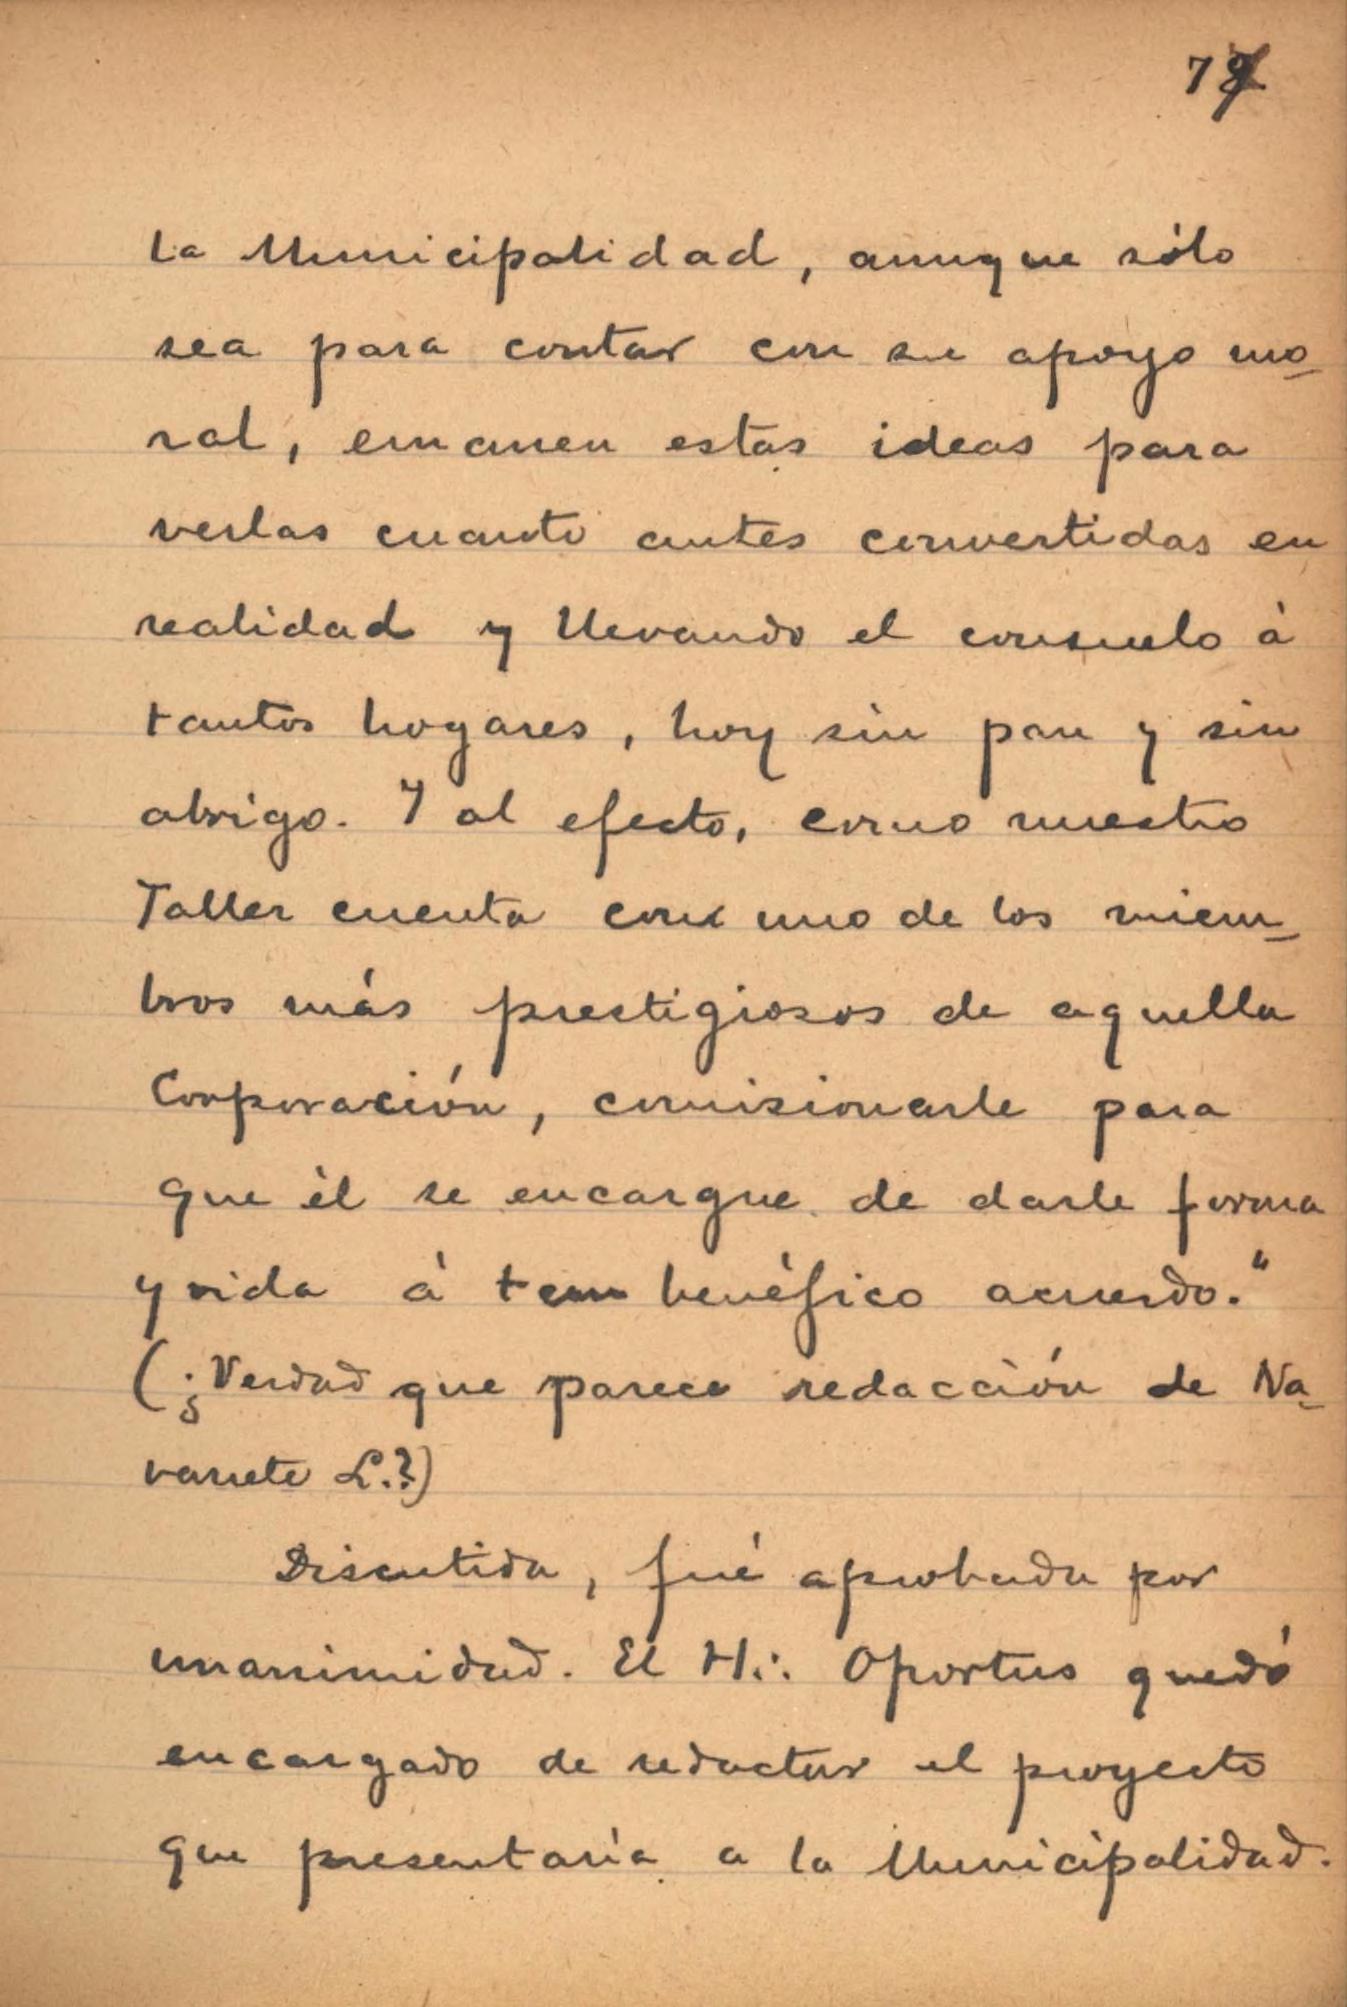 78
la Municipalidad, aunque sólo
sea para contar con su apoyo mo-
ral, emanen estas ideas para
verlas cuanto antes convertidas en
realidad y llevando el consuelo á
tantos hogares, hoy sin pan y sin
abrigo. Y al efecto, como nuestro
Taller cuenta con uno de los miem-
bros más prestigiosos de aquella
Corporación, comisionarle para
que él se encargue de darle forma
y vida á tan benéfico acuerdo."
(¿Verdad que parece redacción de Na-
varrete L.?)
Discutida, fué aprobada por
unanimidad. El H∴ Oportus quedó
encargado de redactar el proyecto
que presentaría a la Municipalidad.